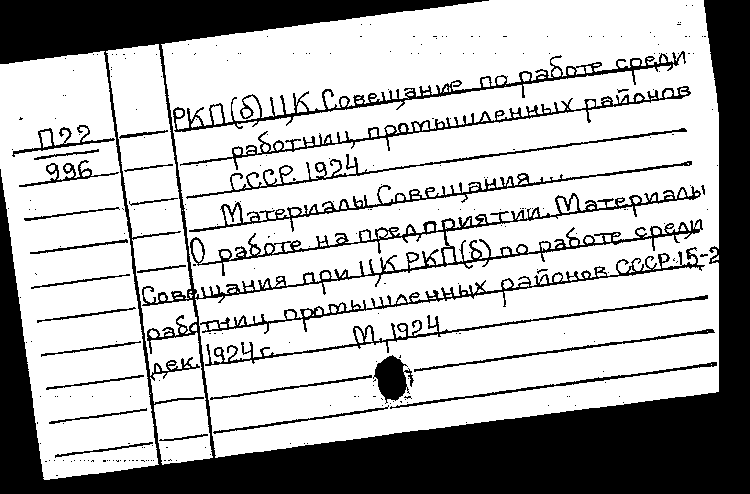 П22
996
РКП(б) ЦК. Совещание по работе среди
работниц промышленных районов
СССР. 1924.
Материалы Совещания...
О работе на предприятии. Материалы
Совещания при ЦК РКП(б) по работе среди
работниц промышленных районов СССР. 15-2
дек. 1924 г. М., 1924.